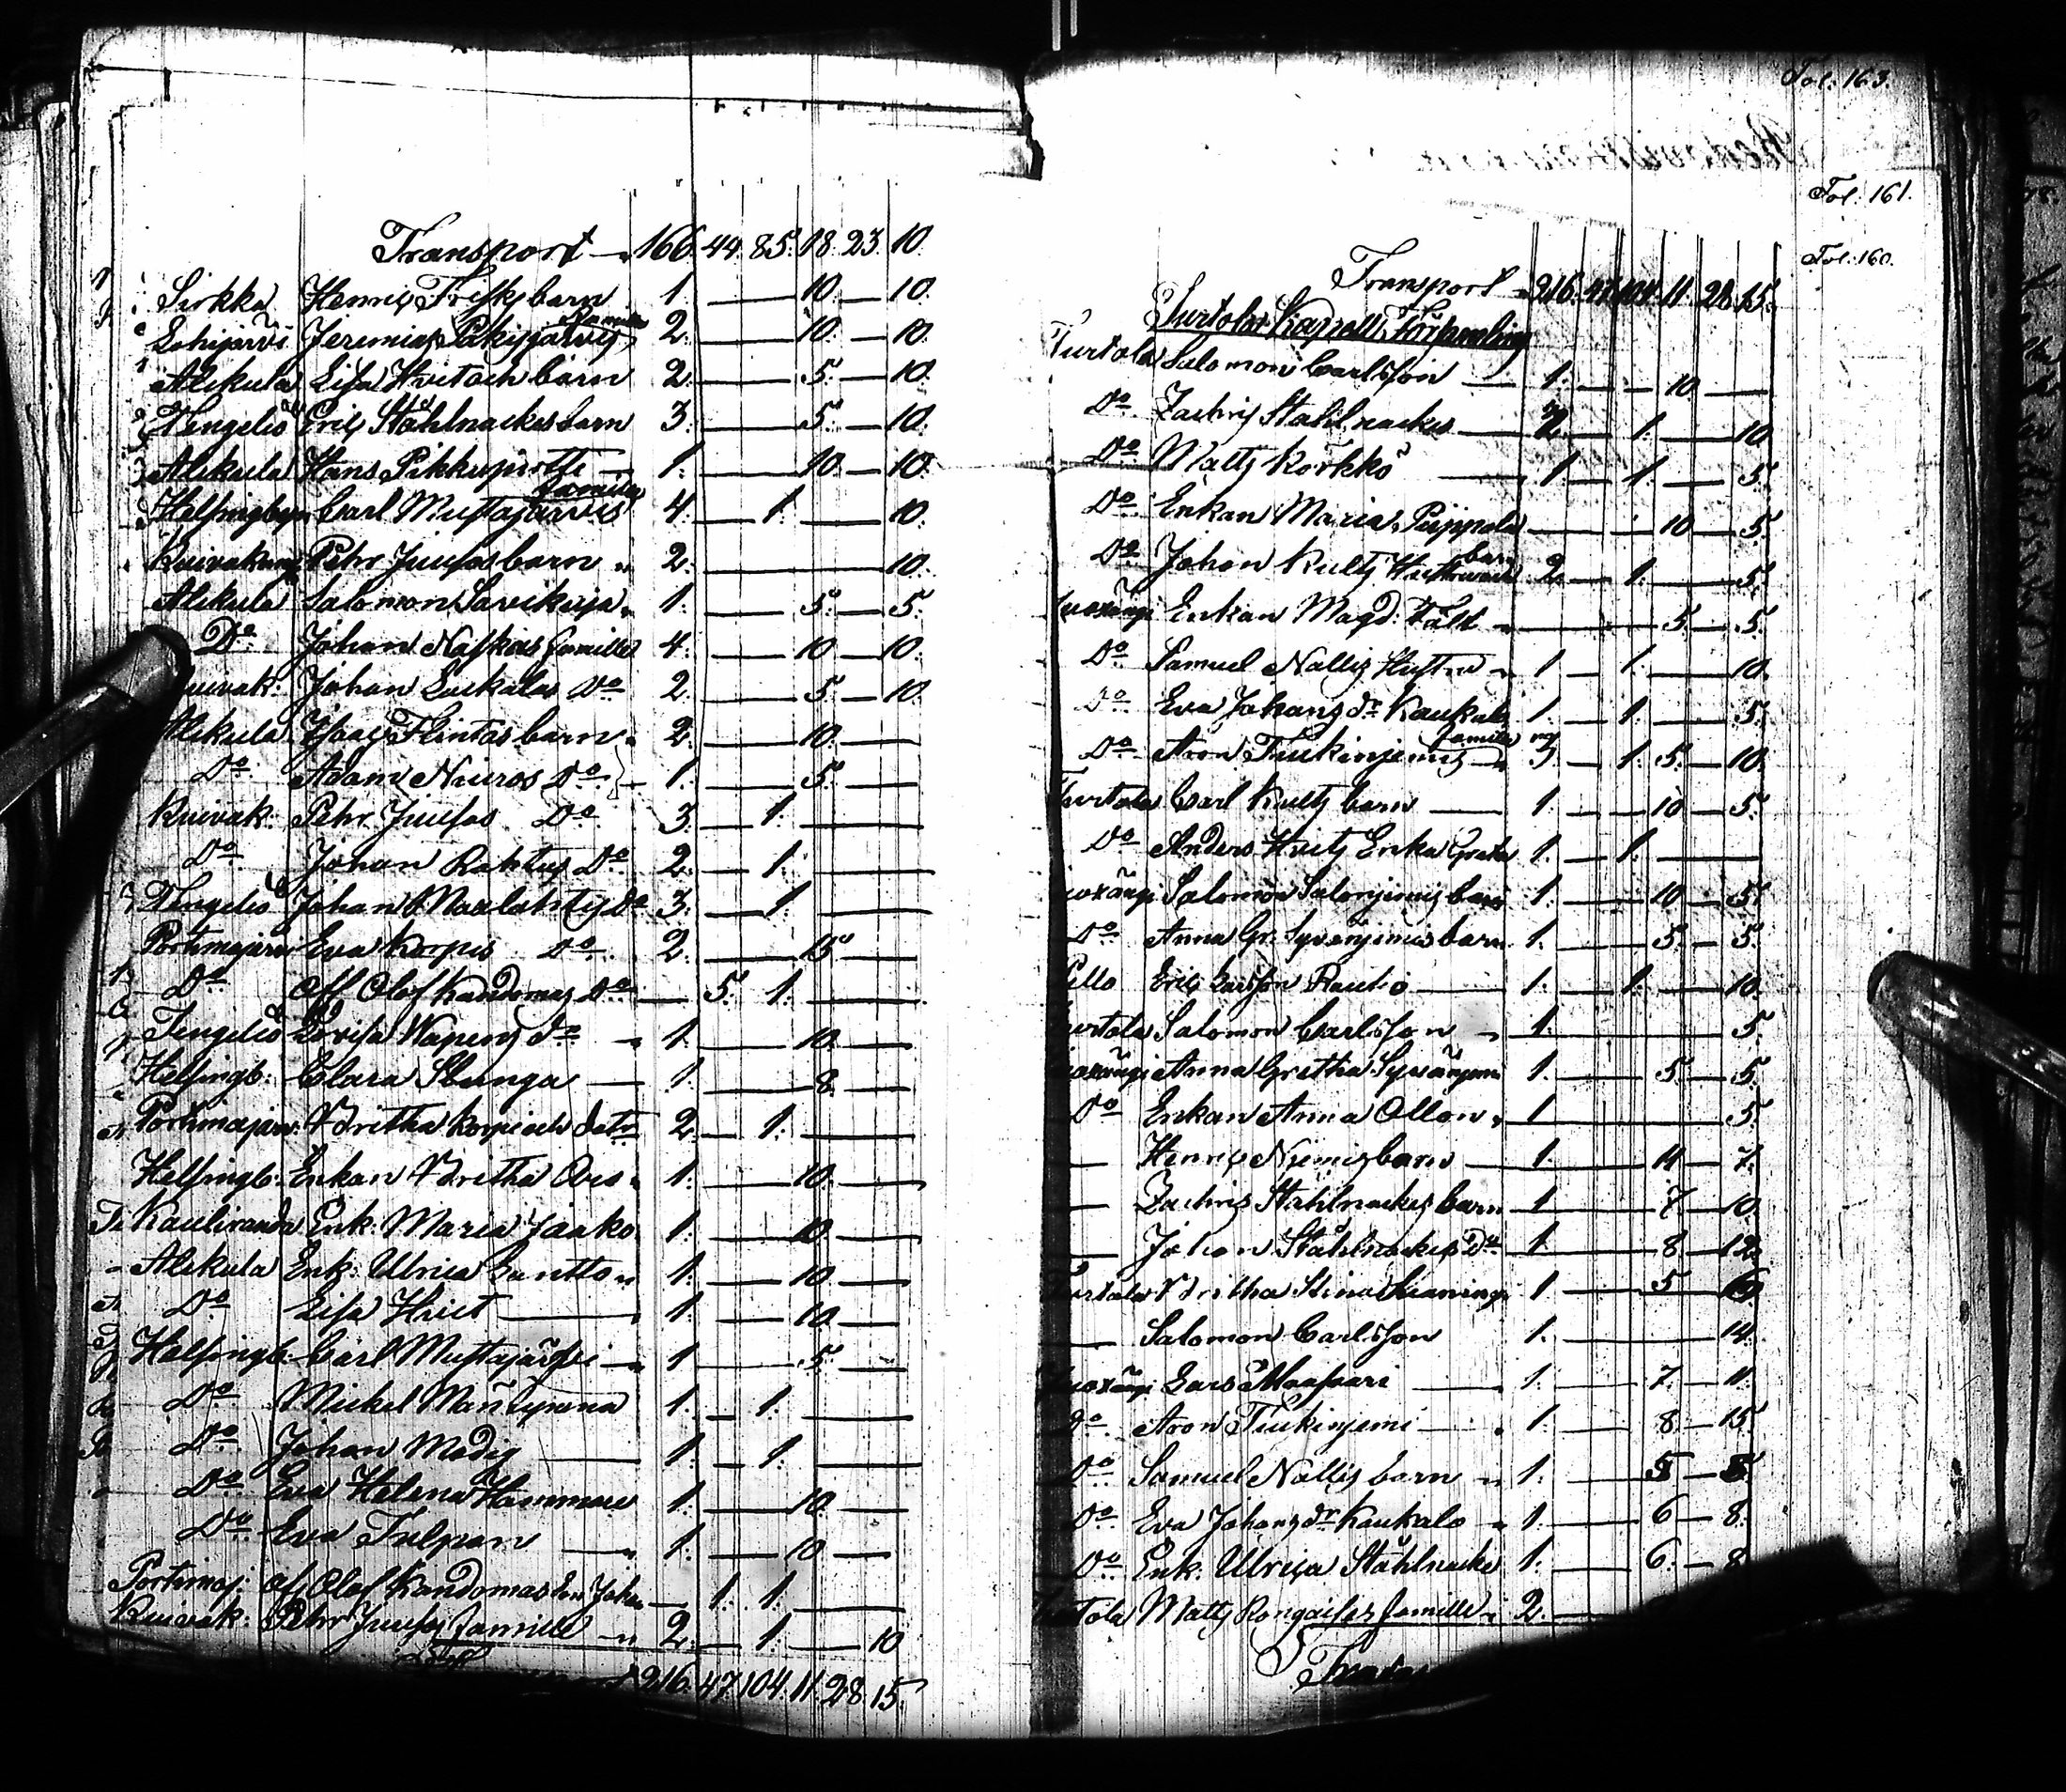 Transport 166. 44. 85. 18. 23. 10.
Sirkka Henric Frisks barn 1. 10. 10.
Lohijärvi Jeremias Pakisjärvis Familie 2. 10. 10.
Alikula Lisa Hvit och barn 2. 5. 10.
Tengeliö Eric Ståhlnackes barn 3. 5. 10.
Alikula Hans Pikkupirtti 1. 10. 10.
Helsingbyn Carl Mustajärvis Familie 4. 1. 10.
Kuivakang Petter Juusos barn 2. 10.
Alikula Salomon Savikuja 1. 5. 5.
Do Johan Naskas Familie 4. 10. 10.
Kuivak: Johan Do 2. 5. 10.
Alikula Isaac Flintas barn 2. 10.
Do Adam Niuros Do 1. 5.
Kuivak: Petr Juusos Do 3. 1.
Do Johan Rahtus Do 2. 1.
Tengeliö Johan Maalahtis Do 3. 1.
Portimojärvi Eva Korpis Do 2. 15.
Do Afl. Olof Kandomas Do 5. 1.
Tengeliö Lovisa Wapens do 1. 10.
Helsingb: Clara 1. 8.
Portimojärv: Britha Korpi och dotr 2. 1.
Helsingb: Enkan Britha 1. 10.
Kauliranda Enk: Maria Jaako 1. 10.
Alikula Enk: Ulrica Lantto 1. 10.
Do Lisa Hviit 1. 10.
Helsingb: Carl Mustajärfvi 1. 5.
Do Mickel 1. 1.
Do Johan Modig 1. 1.
Do Eva Helena Hammare 1. 10.
Do Eva Tulpan 1. 10
Portimoj: Af: Olof Kandomas Johan 1. 1.
Kuivak: Petr Juusos Familie 2. 1. 10
216. 47. 104. 11. 28. 15.
Fol: 163.
Fol: 161.
Fol: 160.
Transport 216. 47. 104. 11. 28. 15.
Turtola Capells Församling
Turtola Salomon Carlsson 1. 10.
Do Zachris Ståhlnacke 2. 1. 10
Do Matts Körkkö 1. 1. 5.
Do Enkan Maria Puppola 10. 5.
Do Johan Kults Hustru och barn 2. 1. 5.
Juoxängi Enkan Magd: Fält 5. 5.
Do Samuel Nallis Hustru 1. 1. 10.
Do Eva Johans dr Kaukalo 1. 1. 5.
Do Aron Tiukinjemis Familie 3. 1. 5. 10.
Turtola Carl Kults barn 1. 10. 5.
Do Anders Hvits Enka Greta 1. 1.
Juoxängi Salomon Salonjemis barn 1. 10. 5.
Do Anna Gr: Syvänjemis barn 1. 5. 5.
Pello Eric Carlsson Rautio 1. 1. 10.
Turtola Salomon Carlsson 1. 5.
Juoxängi Anna Gretha Syvänjemi 1. 5. 5.
Do Enkan Anna Ollon 1. 5.
Henric Niemis barn 1. 14. 7.
Zachris Ståhlnackes barn 1. 7. 10.
Johan Ståhlnackes Do 1. 8. 12.
Turtola Britha Stina 1. 5. 6.
Salomon Carlsson 1. 14.
Juoxängi Lars Maasari 1. 7. 11.
Do Aron Tiukinjemi 1. 8. 15.
Do Samuel Nallis barn 1. 5. 8.
Do Eva Johans dr Kaukalo 1. 6. 8.
Do Enk: Ulrica Ståhlnacke 1. 6. 8.
Turtola Matts Familie 2.